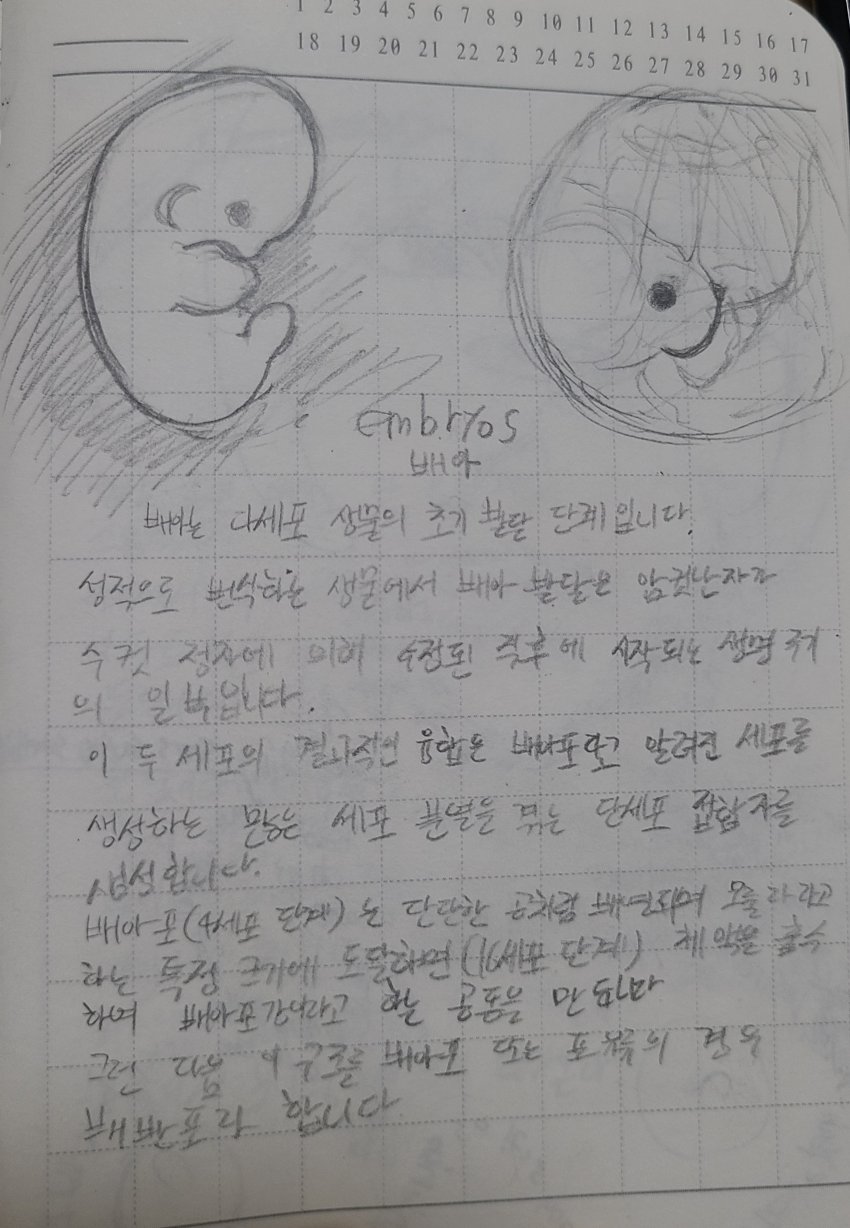 1 2 3 4 5 6 7 8 9 10 11 12 13 14 15 16 17
18 19 20 21 22 23 24 25 26 27 28 29 30 31
Embryos
배아
배아는 다세포 생물의 초기 발달 단계입니다.
성적으로 번식하는 생물에서 배아 발달은 암컷난자가
수컷 정자에 의해 수정된 직후에 시작되는 생명 주기
의 일부입니다.
이 두 세포의 결과적인 융합은 배아포라고 알려진 세포를
생성하는 많은 세포 분열을 겪는 단세포 접합자를
생성합니다.
배아포(4세포 단계)는 단단한 공처럼 배열되며 모룰라라고
하는 특정 크기에 도달하면(16세포 단계) 체액을 흡수
하여 배아포강이라고 하는 공동을 만듭니다
그런 다음 이 구조를 배아포 또는 포유류의 경우
배반포라 합니다